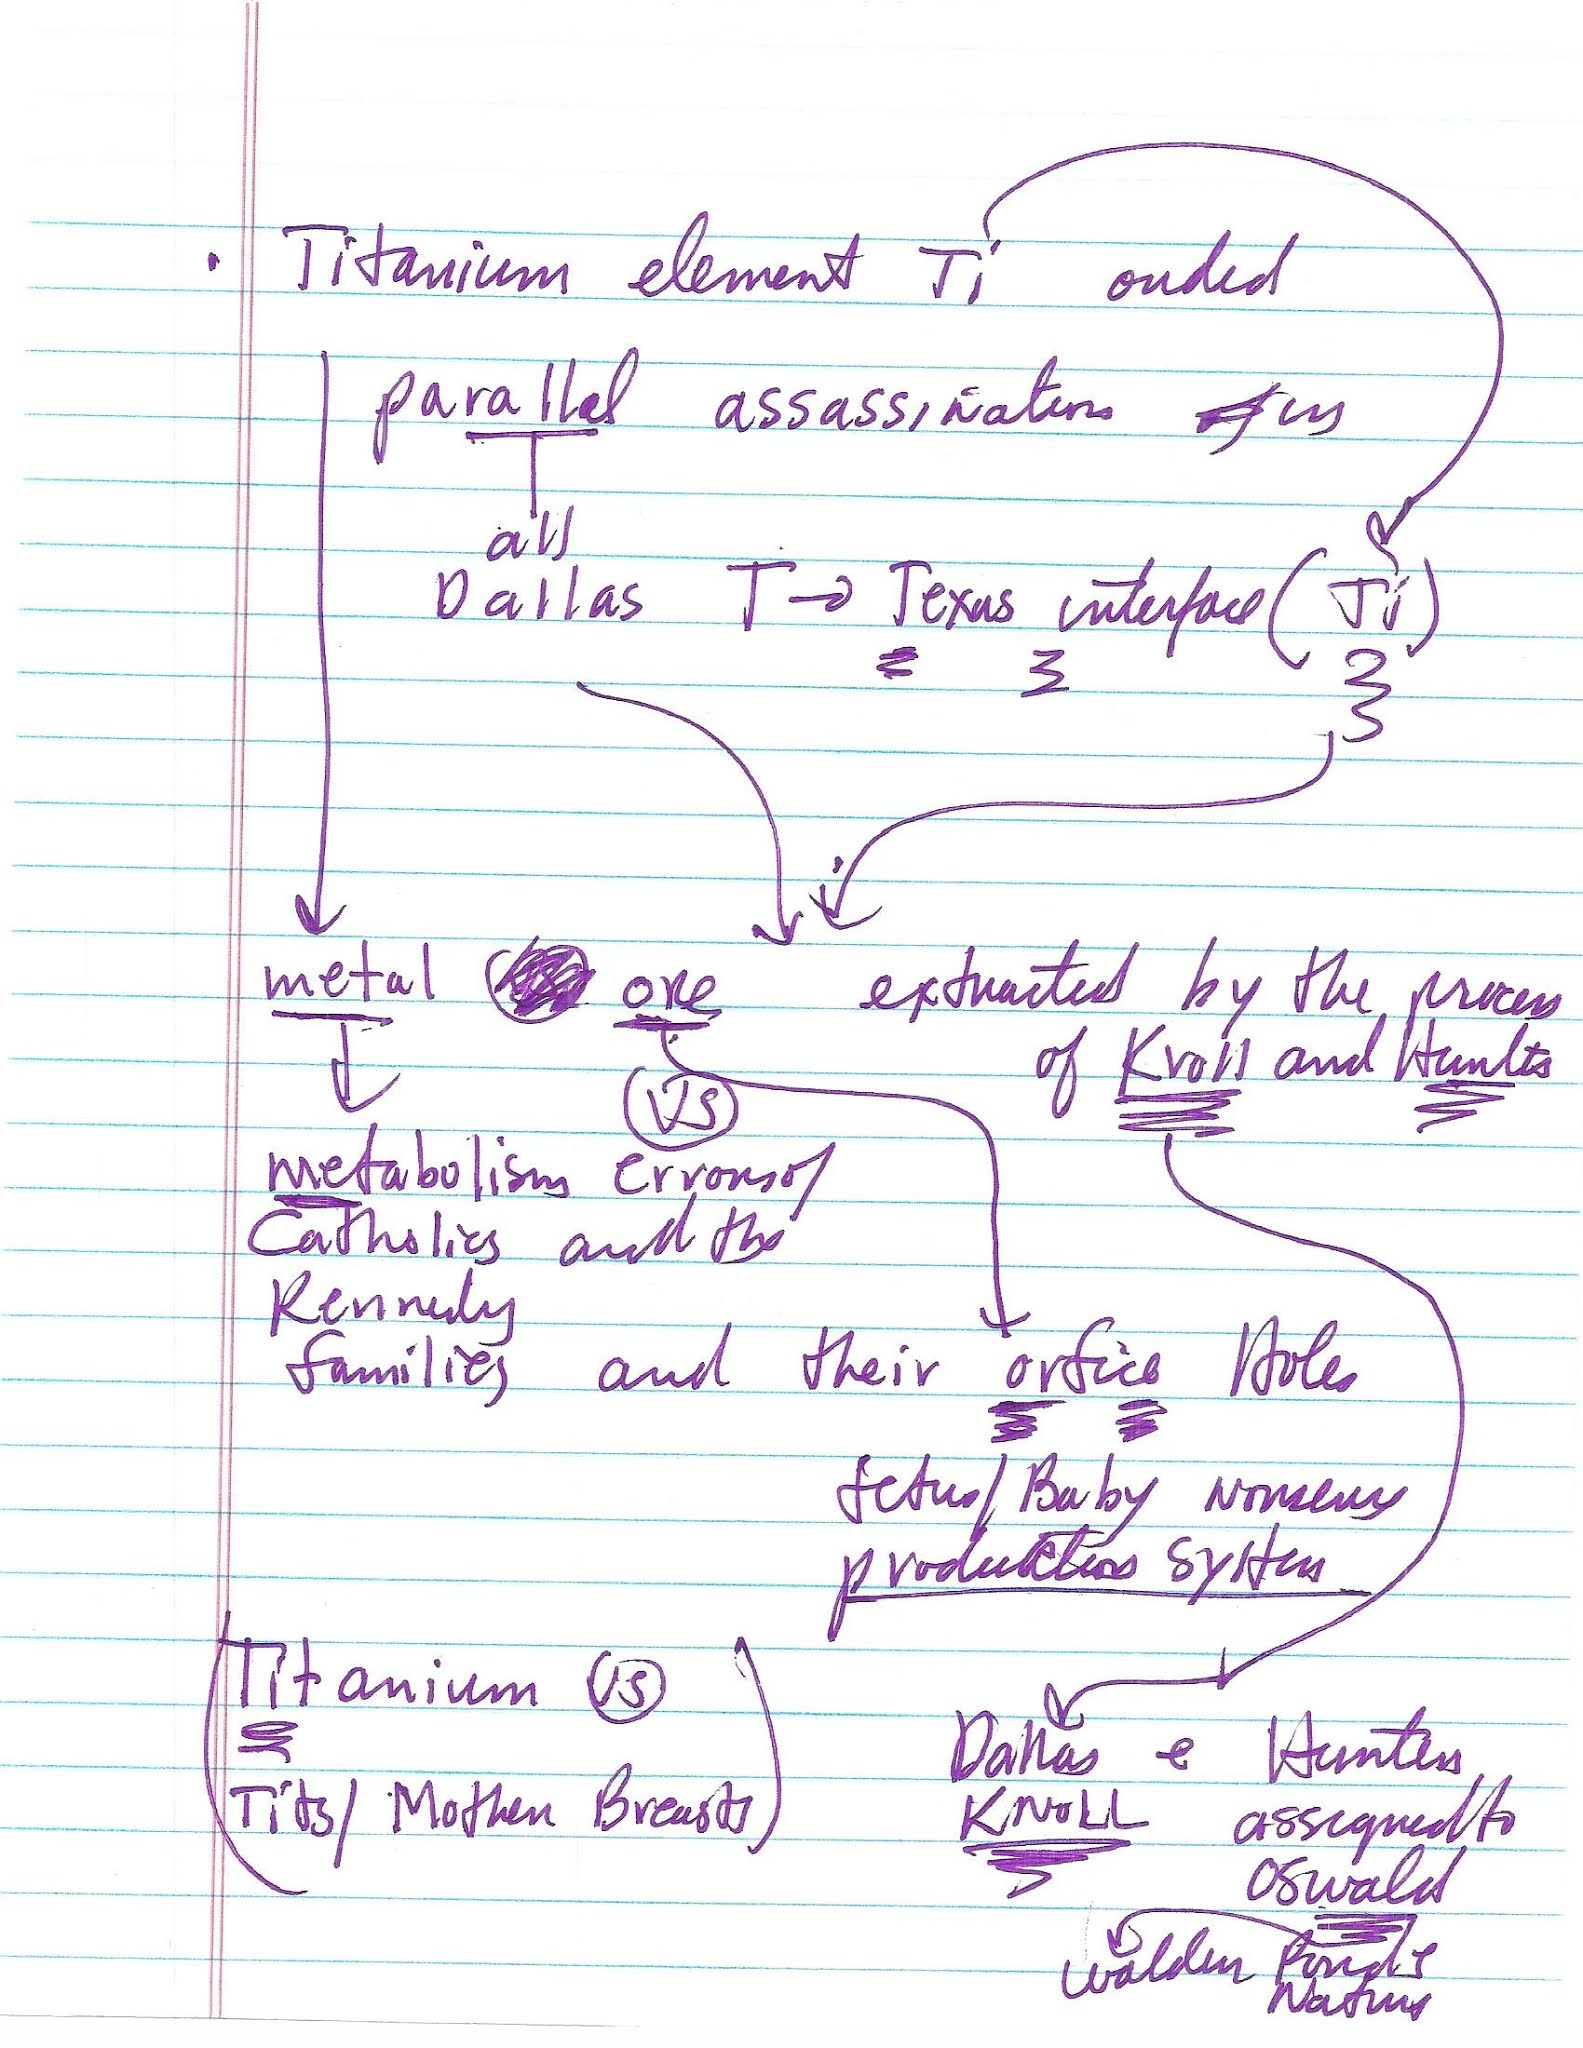 • Titanium element Ti
parallel assassination
all
Dallas T → Texas interface (Ti)
metal ore extracted by the process
of Kroll and Hunts
vs
metabolism errors of
Catholics and the
Kennedy
families and their orfice Holes
fetus/Baby nonsense
production system
(Titanium vs
Tits/Mother Breasts)
Dallas e Hunters
KNOLL assigned to
Oswald
Walden Pond's
Nature